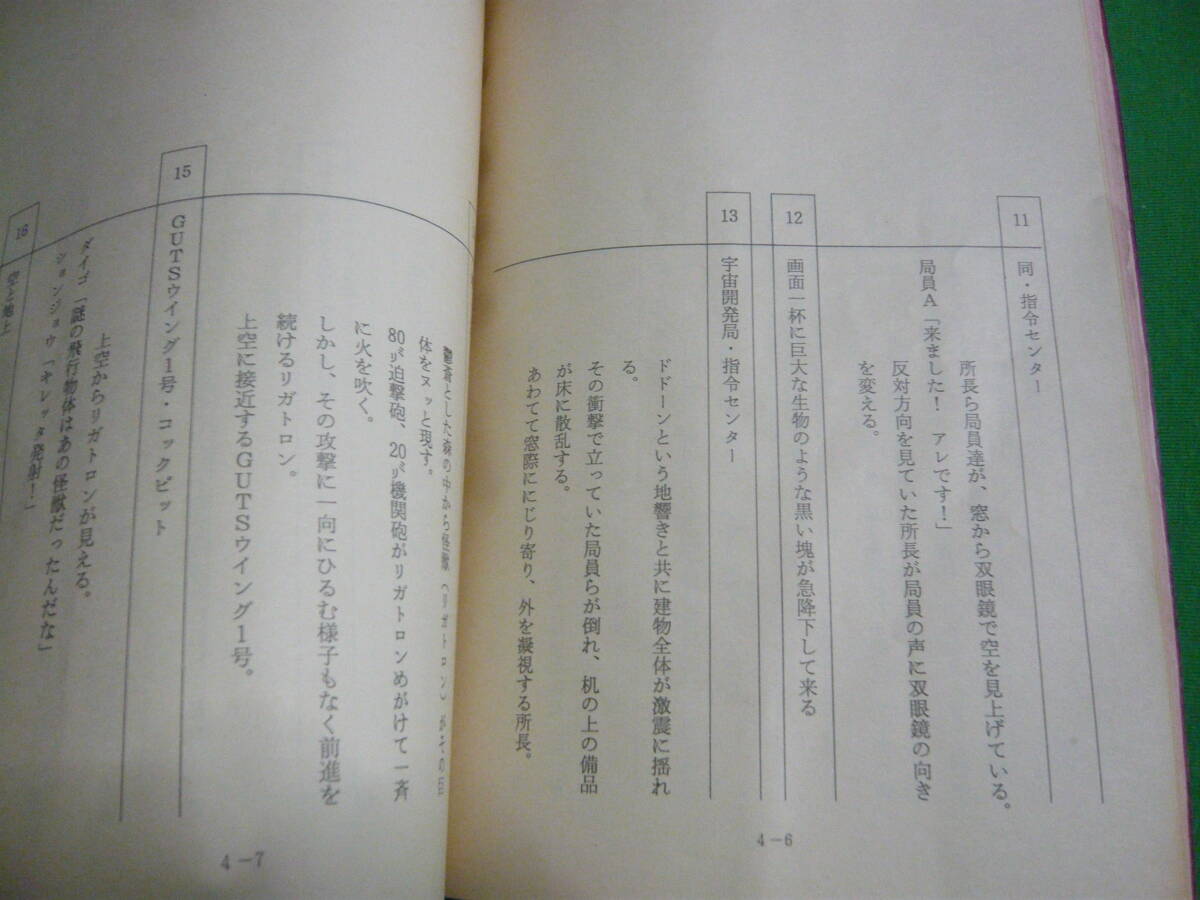 11 同・指令センター
所長ら局員達が、窓から双眼鏡で空を見上げている。
局員A「来ました! アレです!」
反対方向を見ていた所長が局員の声に双眼鏡の向き
を変える。
12 画面一杯に巨大な生物のような黒い塊が急降下して来る
13 宇宙開発局・指令センター
ドドーンという地響きと共に建物全体が激震に揺れ
る。
その衝撃で立っていた局員らが倒れ、机の上の備品
が床に散乱する。
あわてて窓際ににじり寄り、外を凝視する所長。
4-6
鬱蒼とした森の中から怪獣(リガトロン)がその巨
体をヌッと現す。
80㍉迫撃砲、20㍉機関砲がリガトロンめがけて一斉
に火を吹く。
しかし、その攻撃に一向にひるむ様子もなく前進を
続けるリガトロン。
上空に接近するGUTSウイング1号。
15 GUTSウイング1号・コックピット
上空からリガトロンが見える。
ダイゴ「謎の飛行物体はあの怪獣だったんだな」
ションジョウ「オレッタ発射!」
16 空と地上
4-7